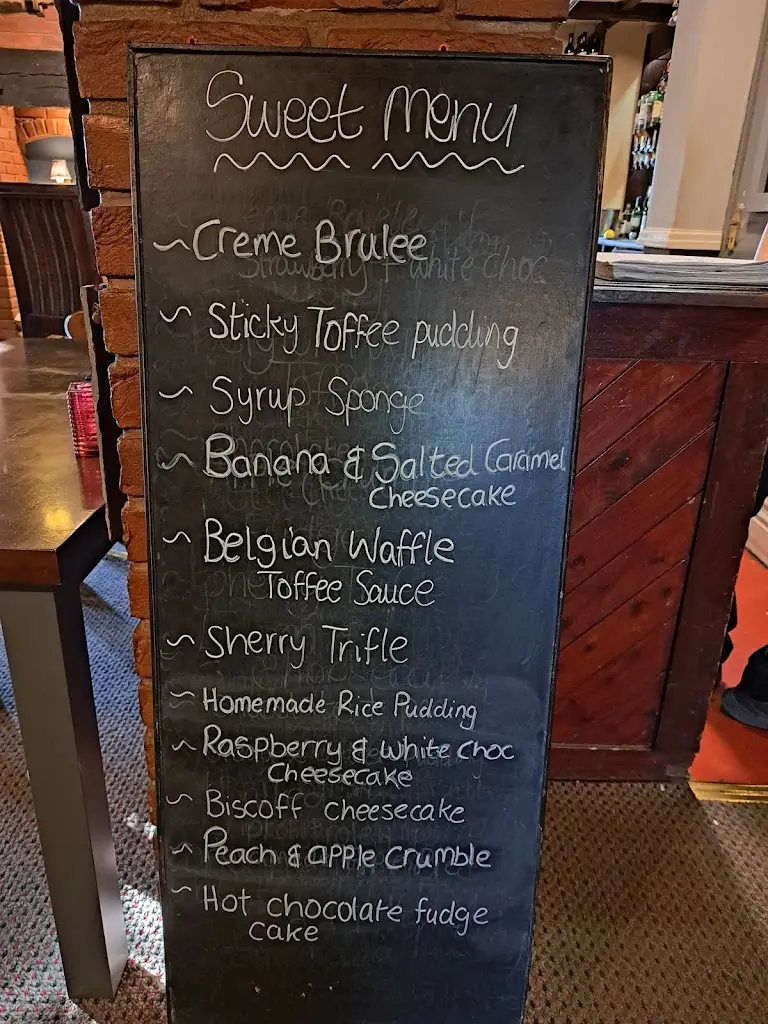 Sweet Menu
~Creme Brulee
~ Sticky Toffee pudding
~ Syrup Sponge
~ Banana & Salted Caramel
Cheesecake
~ Belgian Waffle
Toffee Sauce
~ Sherry Trifle
~ Homemade Rice Pudding
~ Raspberry & white choc
Cheesecake
~ Biscoff cheesecake
~ Peach & apple crumble
~ Hot chocolate fudge
cake